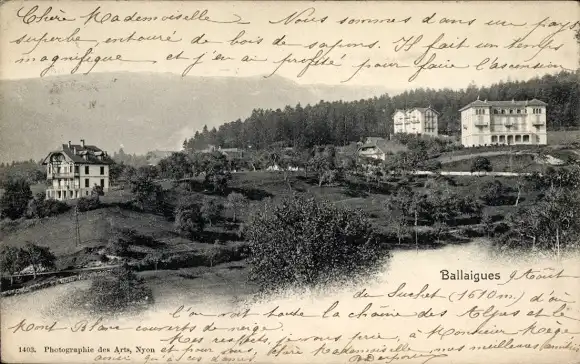 Chère Mademoiselle Nous sommes dans un pays
superbe entouré de bois de sapins. Il fait un temps
magnifique et j'en ai profité pour faire l'ascension
Ballaigues 9 Août
de Suchet (1610m) d'où
l'on voit toute la chaîne des Alpes et le
Mont Blanc couverts de neige.
Mes respects, je vous prie, à Monsieur Rager
1403. Photographie des Arts, Nyon
ainsi qu'à ces dames et pour vous chère Mademoiselle mes meilleures